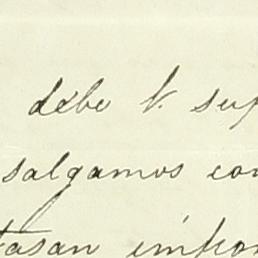 debe V. sup
salgamos con
tasan impor